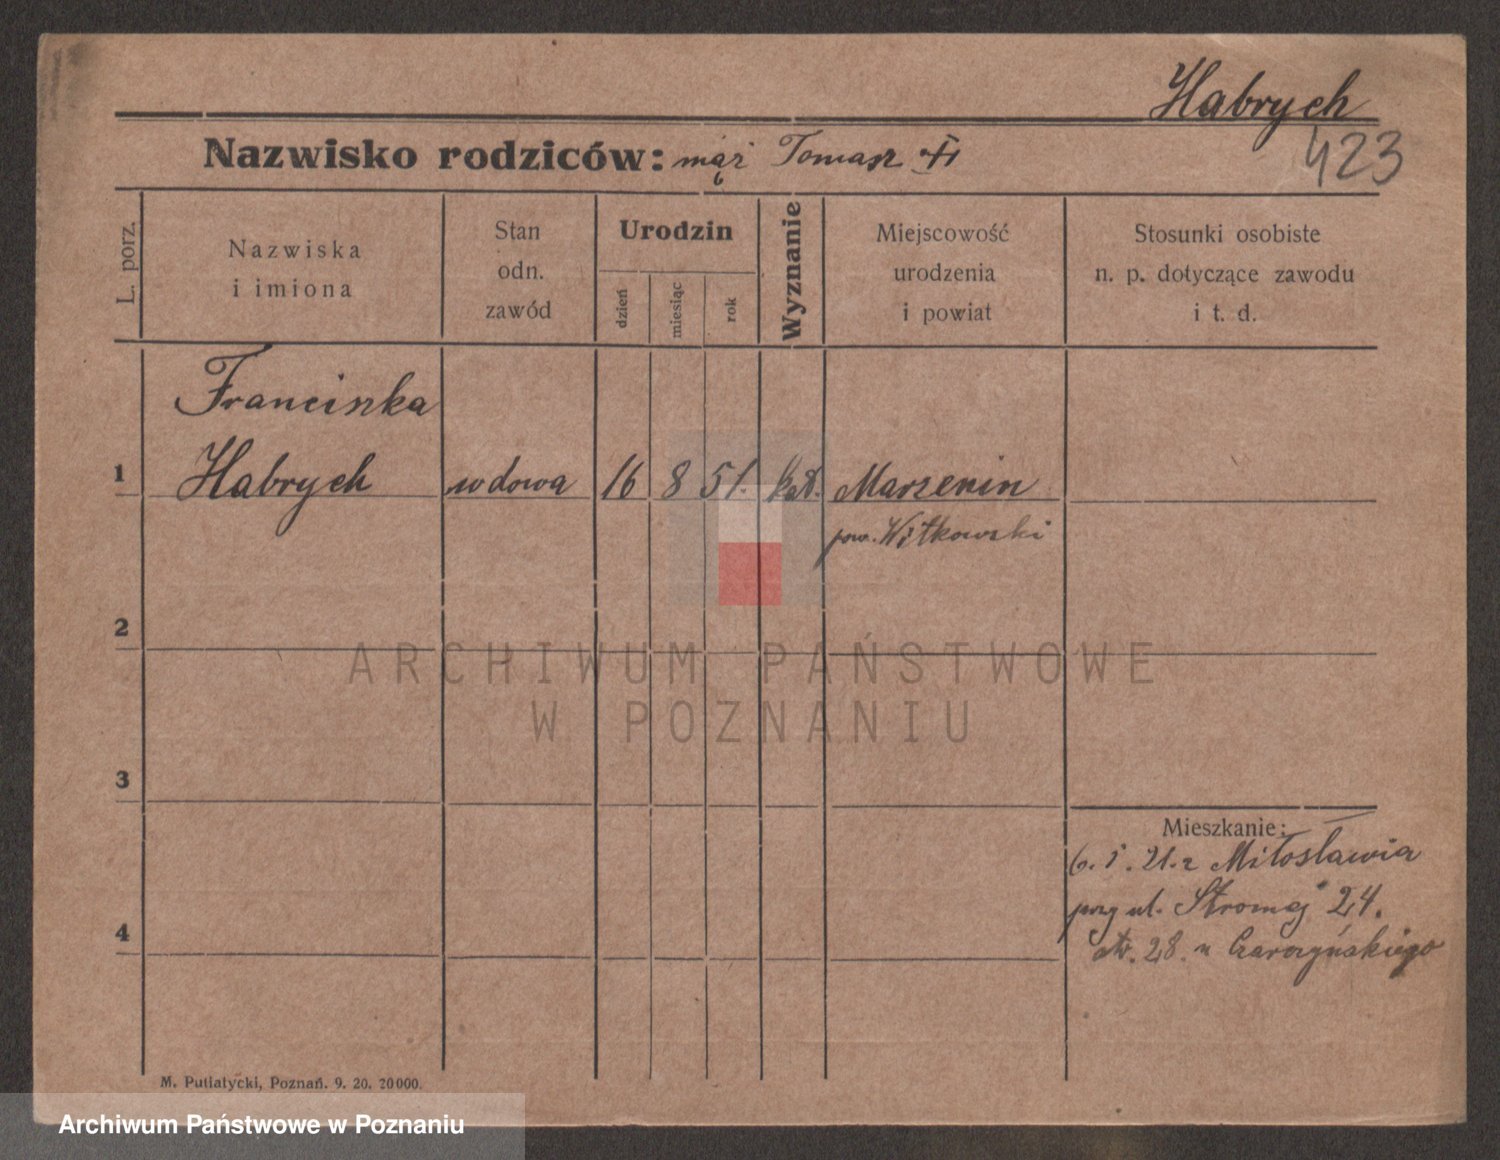 Habrych
423
Nazwisko rodziców: mąż Tomasz
L. porz.
Nazwiska
i imiona
Stan
odn.
zawód
Urodzin
dzień
miesiąc
rok
Wyznanie
Miejscowość
urodzenia
i powiat
Stosunki osobiste
n. p. dotyczące zawodu
i t. d.
Franciszka
1 Habrych wdowa 16 8 51. kat. Marzenin
pow. Witkowski
2
ARCHIWUM PAŃSTWOWE
W POZNANIU
3
Mieszkanie:
6. 5. 21. z Miłosławia
przy ul. Stromej 24.
4
28. u
M. Putiatycki, Poznań. 9. 20. 20000.
Archiwum Państwowe w Poznaniu